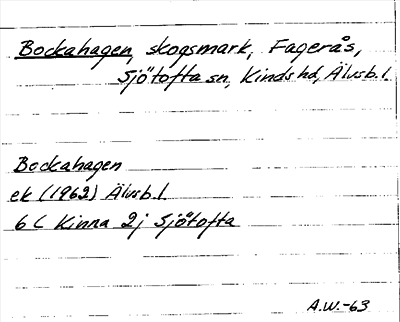 Bockahagen, skogsmark, Fagerås,
Sjötofta sn, Kinds hd, Älvsb.l.
Bockahagen
ek (1962) Älvsb.l.
6 C Kinna 2j Sjötofta
A.W.-63